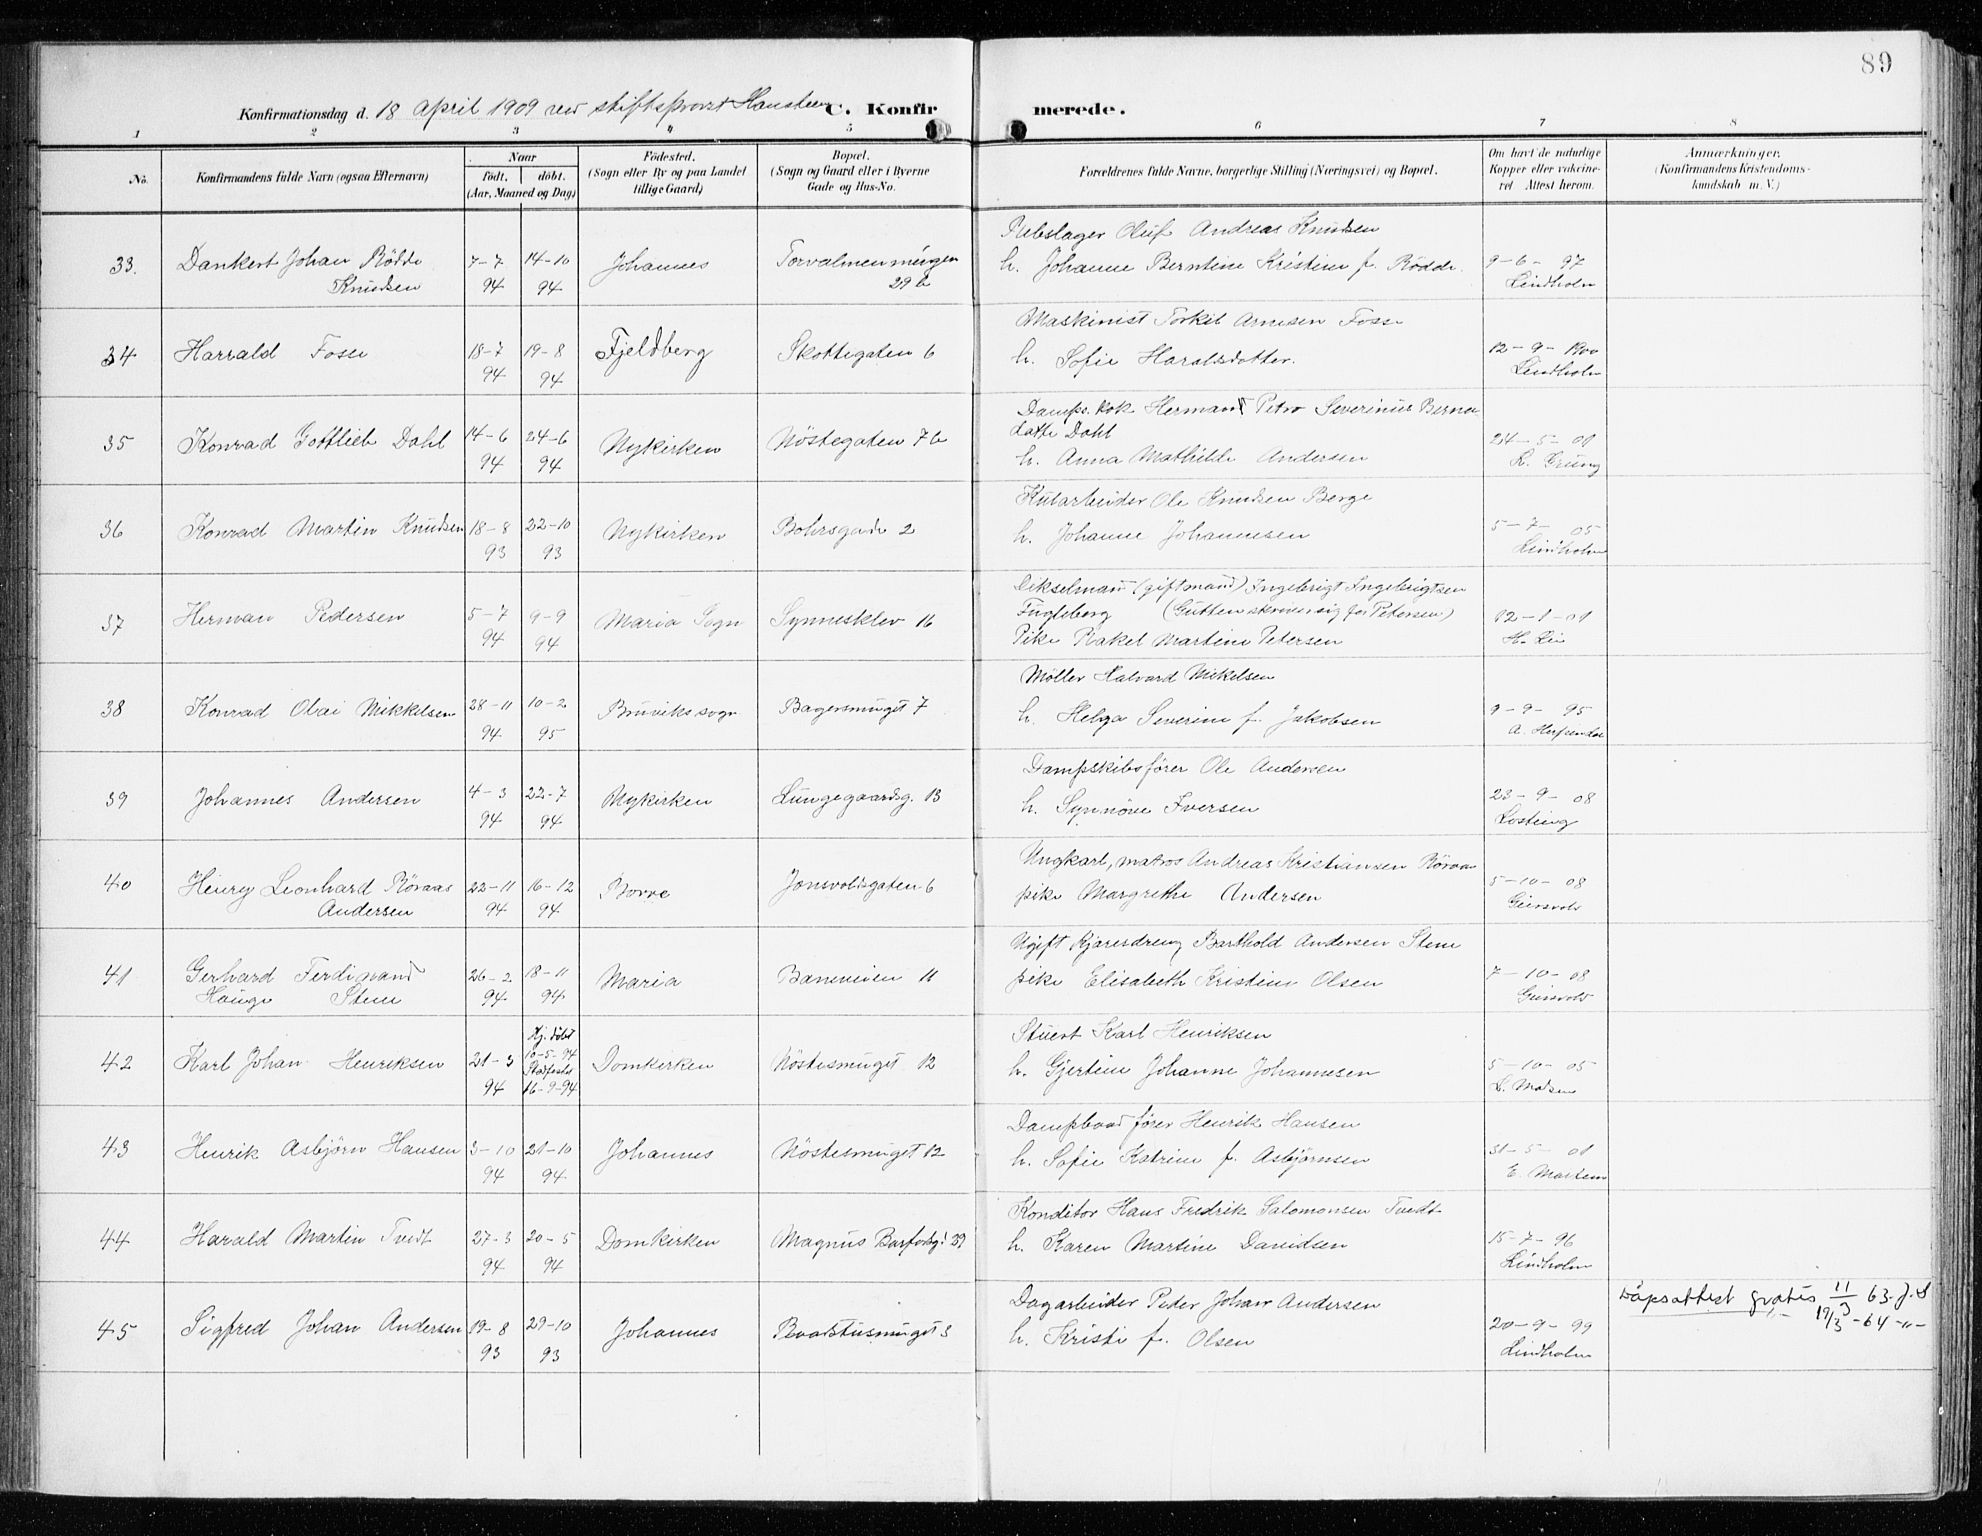 89
Konfirmationsdag d. 18 april 1909 ved stiftsprovst Hansteen C. Konfirmerede.
1 2 3 4 5 6 7 8
No.
Konfirmandens fulde Navn (ogsaa Efternavn)
Naar
født. døbt.
(Aar, Maaned og Dag)
Fødested.
(Sogn eller By og paa Landet
tillige Gaard)
Bopæl.
(Sogn og Gaard eller i Byerne
Gade og Hus-No.
Forældrenes fulde Navne, borgerlige Stilling (Næringsvei) og Bopæl.
Om havt de naturlige
Kopper eller vakcine-
ret Attest herom.
Anmærkninger.
(Konfirmandens Kristendoms-
kundskab m. V.)
Rebslager Oluf Andreas Knudsen
33. Dankert Johan Rödde 7-7 14-10 Johannes Torvalmenningen h. Johanne Berntine Kristine f. Rödde. 9-6-97
Knudsen 94 94 29 b Lindholm
Maskinist Torkil Arnesen Fosse
34 Harrald Fosse 18-7 19-8 Fjeldberg Skottegaten 6 h. Sofie Haralsdotter. 12-9-1900
94 94 Lindholm
Damps. kok Herman Petro Severinus Berna
datte Dahl
35 Konrad Gottlieb Dahl 14-6 24-6 Nykirken Nöstegaten 76 24-5-01
94 94 h. Anna Mathilde Andersen L. Grung
Kularbeider Ole Knudsen Berge
36 Konrad Martin Knudsen 18-8 22-10 Nykirken Bohrsgade 2 h. Johanne Johannesen 5-7-05
93 93 Lindholm
(giftmand) Ingebrigt Ingebrigtsen
37 Herman Pedersen 5-7 9-9 Maria Sogn Synnesklev 16 Fugleberg (Gutten skriver sig for Petersen) 12-1-01
94 94 Pike Rakel Martine Petersen H. Lie
Møller Halvard Mikelsen
38 Konrad Olai Mikkelsen 28-11 10-2 Bruviks sogn Bagersmuget 7 h. Helga Severine f. Jakobsen 9-9-95
94 95
Dampskibsfører Ole Andersen
39 Johannes Andersen 4-3 22-7 Nykirken Lungegaardsg. 13 h. Synnöve Iversen 23-9-08
94 94 Losting
Ungkarl, matros Andreas Kristiansen Röraas
40 Henry Leonhard Röraas 22-11 16-12 Borre Jonsvoldsgaten 6 pike Margrethe Andersen 5-10-08
Andersen 94 94
Ugift Kjøresdreng Barthold Andersen Stene
41 Gerhard Ferdinand 26-2 18-11 Maria Baneveien 11 pike Elisabeth Kristine Olsen 7-10-08
Hauge Stene 94 94
Hj. døbt Stuert Karl Henriksen
42 Karl Johan Henriksen 21-3 10-5-94 Domkirken Nöstesmuget 12 h. Gjertine Johanne Johannesen 5-10-05
94 Stadfestet 16-9-94 L. Madsen
Dampbaad fører Henrik Hansen
43 Henrik Asbjörn Hansen 3-10 21-10 Johannes Nöstesmuget 12 h. Sofie Katrine f. Asbjörnsen 31-5-01
94 94 E. Martens
Konditor Hans Fredrik Salomonsen Tvedt
44 Harald Martin Tvedt 27-3 20-5 Domkirken Magnus Barfodsg. 29 h. Karen Martine Davidsen 15-7-96
94 94 Lindholm
Dagarbeider Peder Johan Andersen Dåpsattest gratis 11/3 63. J.S
45 Sigfred Johan Andersen 19-8 29-10 Johannes h. Kristi f. Olsen 20-9-99 -"- 19/3-64 -"-
93 93 Lindholm